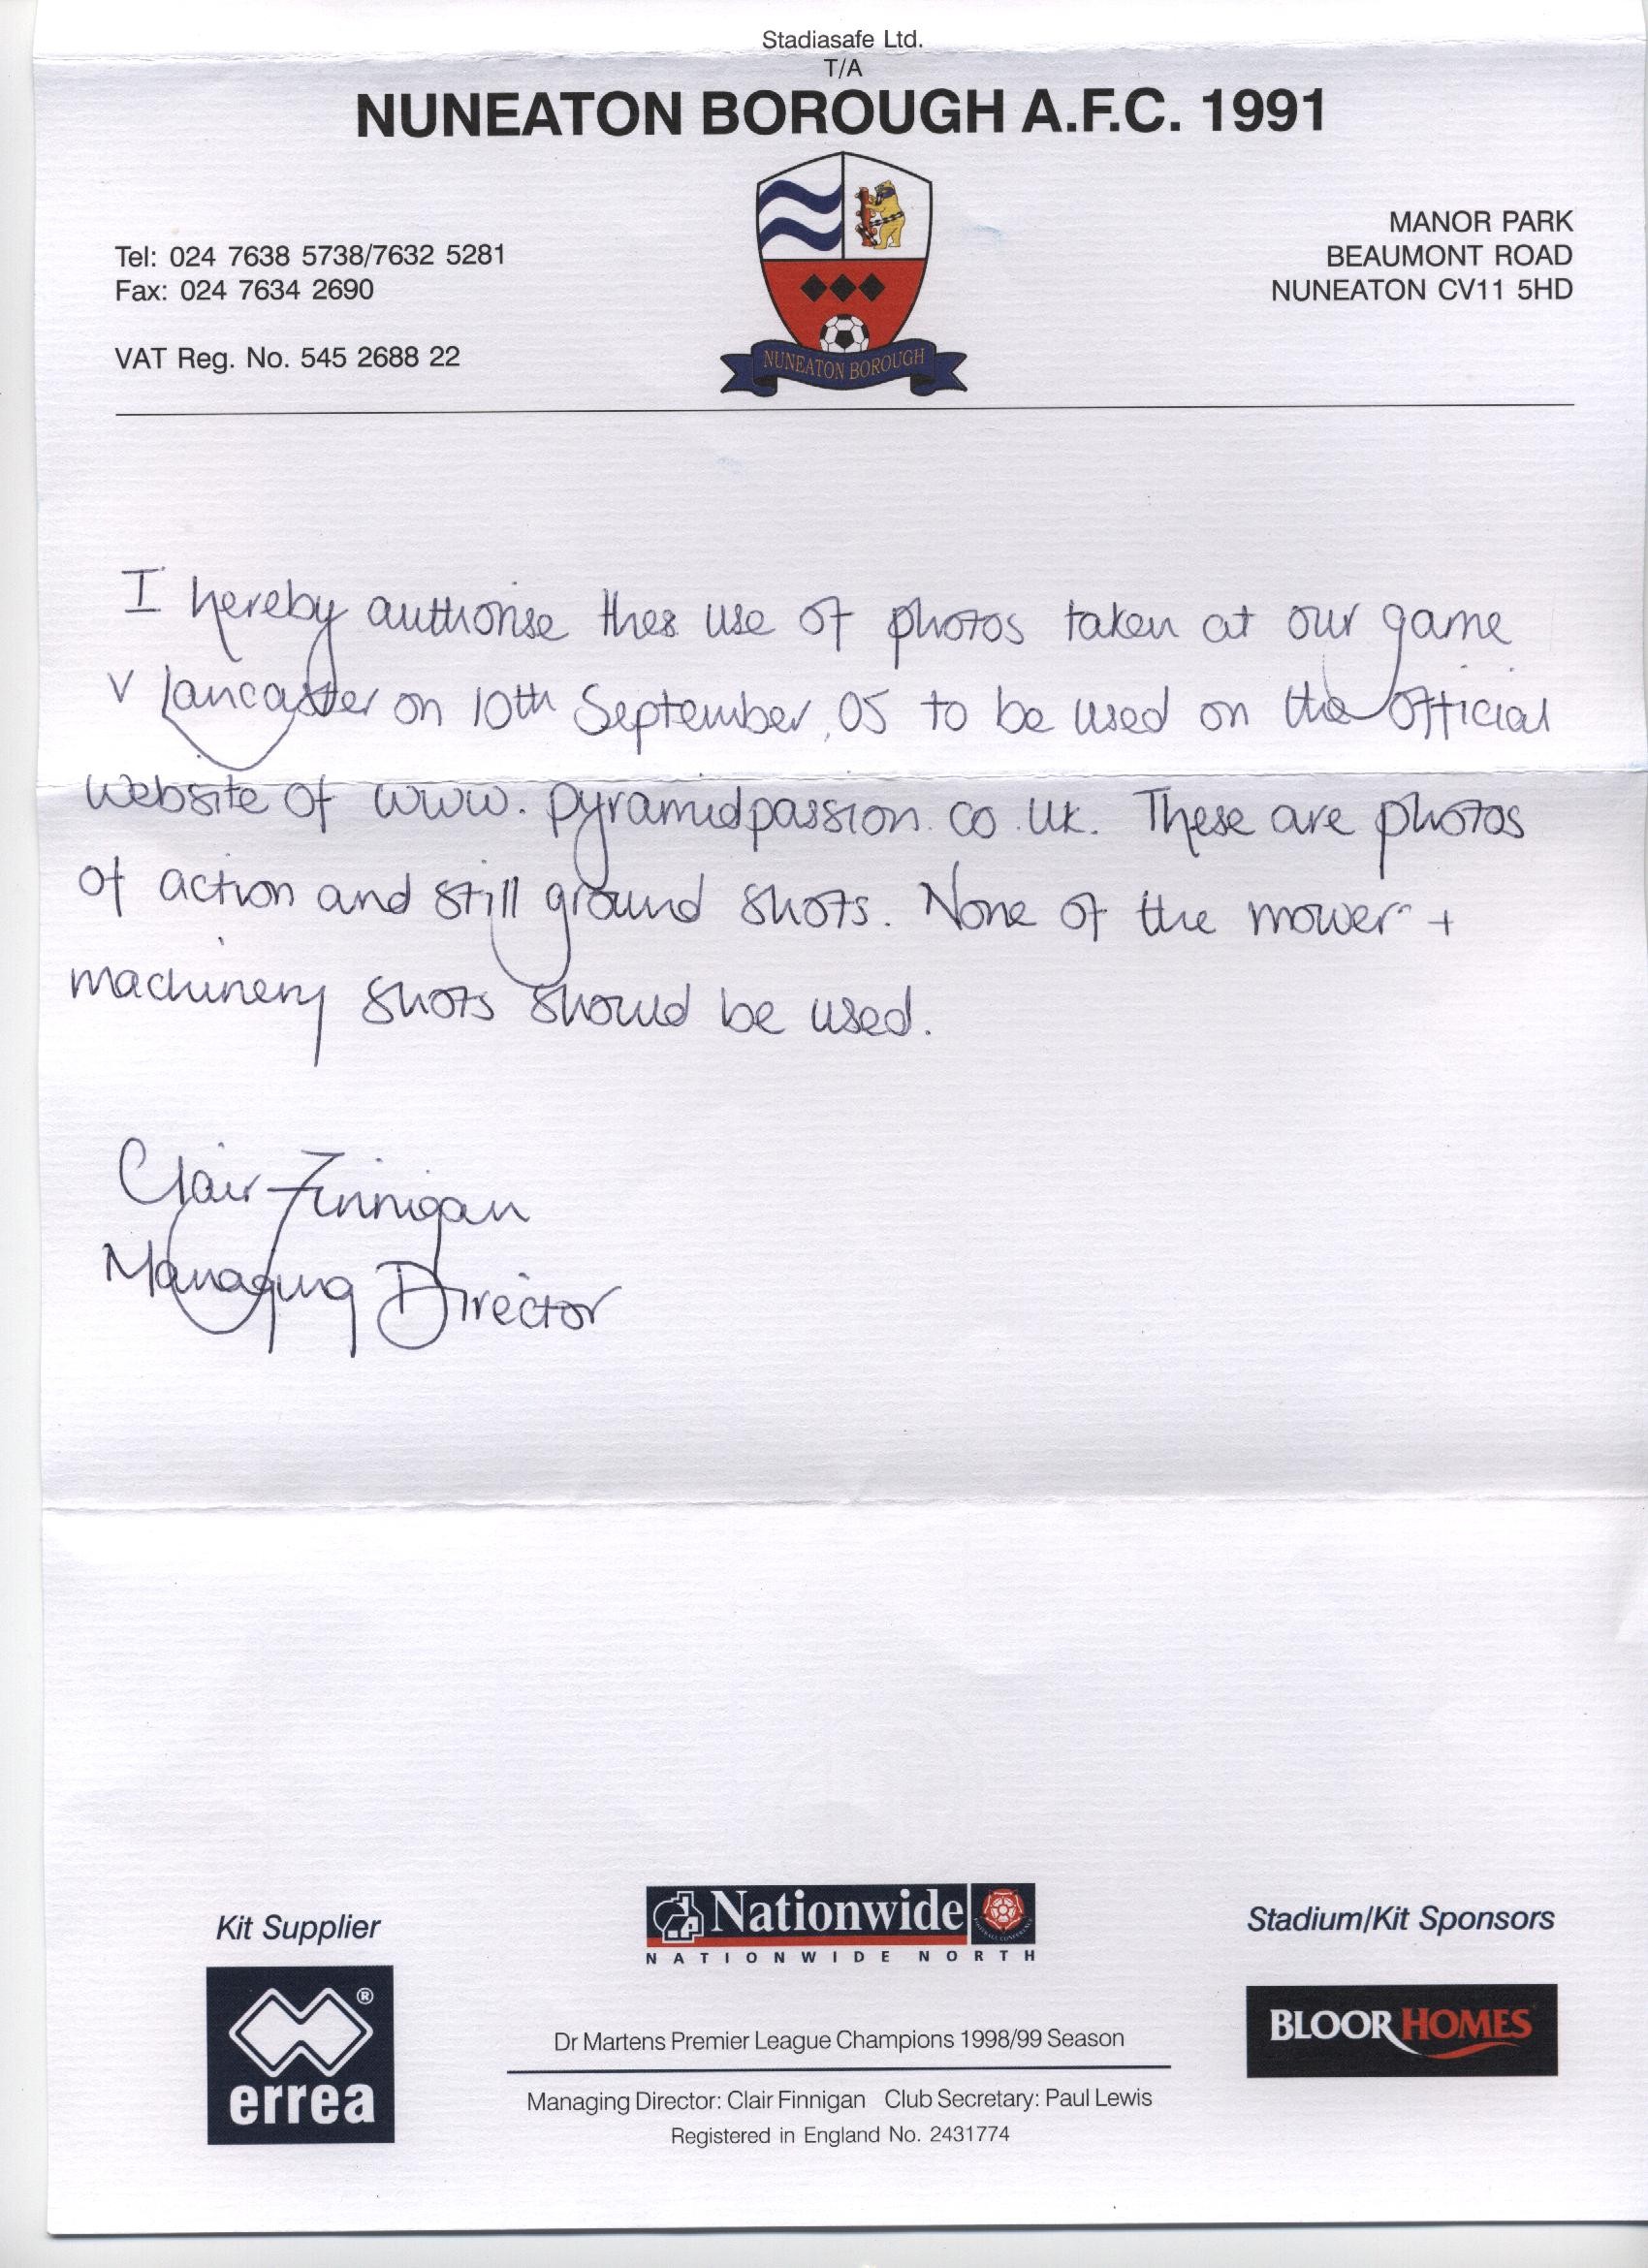 Stadiasafe Ltd.
T/A
NUNEATON BOROUGH A.F.C. 1991
Tel: 024 7638 5738/7632 5281
Fax: 024 7634 2690
VAT Reg. No. 545 2688 22
NUNEATON BOROUGH
MANOR PARK
BEAUMONT ROAD
NUNEATON CV11 5HD
I hereby authorise thes use of photos taken at our game
v Lancaster on 10th September, 05 to be used on the official
website of www.pyramidpassion.co.uk. These are photos
of action and still ground shots. None of the mower +
machinery shots should be used.
Clair Finnigan
Managing Director
Kit Supplier
errea
®
Nationwide
NATIONWIDE NORTH
Stadium/Kit Sponsors
BLOOR HOMES
Dr Martens Premier League Champions 1998/99 Season
Managing Director: Clair Finnigan Club Secretary: Paul Lewis
Registered in England No. 2431774